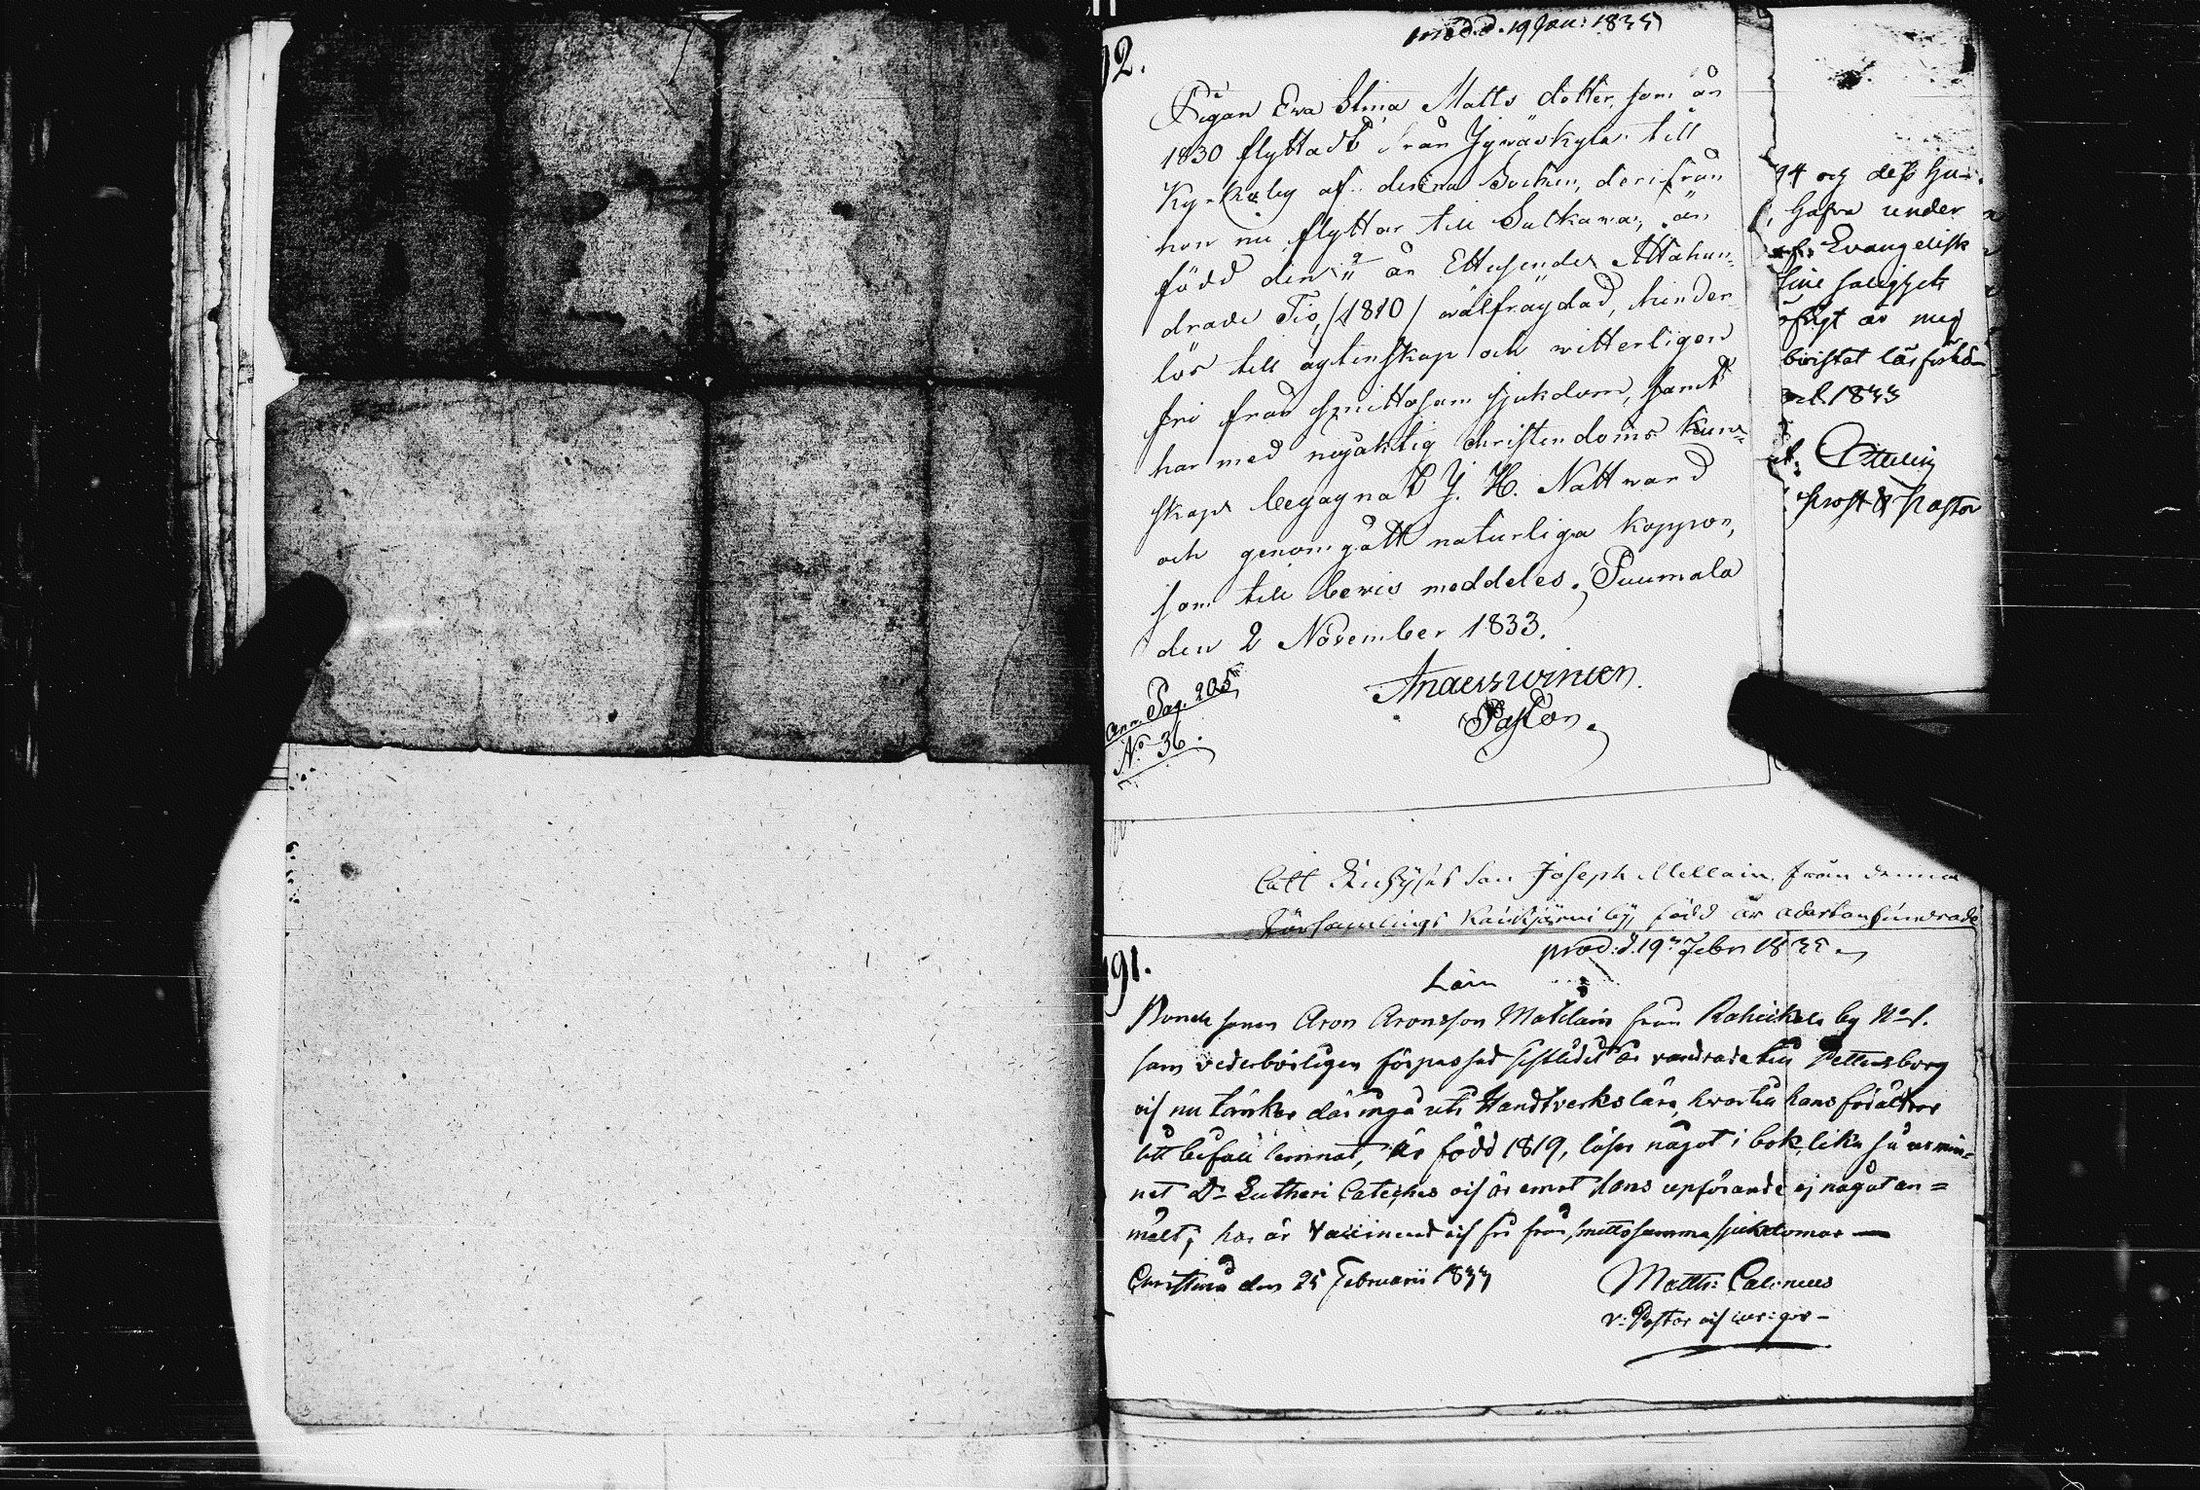 prod. d. 19 Jan: 1835
92.
Pigan Eva Stina Matts dotter, som år
1830 flyttadt från Jyväskylä till
Kyrkoby af denna Socken, derifrån
hon nu flyttar till Sulkava, är
född den " år Ettusende Åttahun-
drade Tio, /1810/ välfräjdad, hinder-
lös till ägtenskap och vitterligen
fri från smittosam sjukdom, samt
har med nöjaktig christendoms kun-
skap begagnat H. H. Nattvard
och genomgått naturliga koppor,
som till bevis meddeles. Puumala
den 2 November 1833.
Anders Winter
Pastor.
Ann. Pag. 205
No 36.
94 och dess
hafva under
Evangelisk
öfrigt är mig
bevistat läsförhör
1833
Prost & Pastor
son Joseph Mellain från denna
Församlings by, född år adertonhundrade
prod: d. 19 Febr 1835
191.
Län
Bonde sonen Aron Aronsson Matilain från Rahikkala by No 1.
som vederbörligen förpassad sistledit år vandrade till Pettersborg
och nu tänker där ingå uti Handtverks lära, hvartill hans föräldrar
sitt bifall lemnat, är född 1819, läser något i bok, lika så ur min-
net Dr Lutheri Cateches och är emot hans upförande ej något an-
mält; han är Vaccinerad och fri från smittosamma sjukdomar —
Christina den 25 Februarii 1833
Matth: Calonius
v: Pastor och